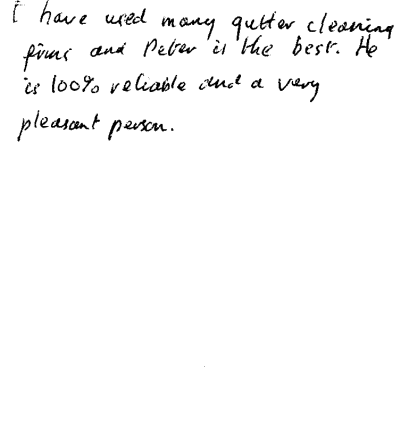 I have used many gutter cleaning
firms and Peter is the best. He
is 100% reliable and a very
pleasant person.